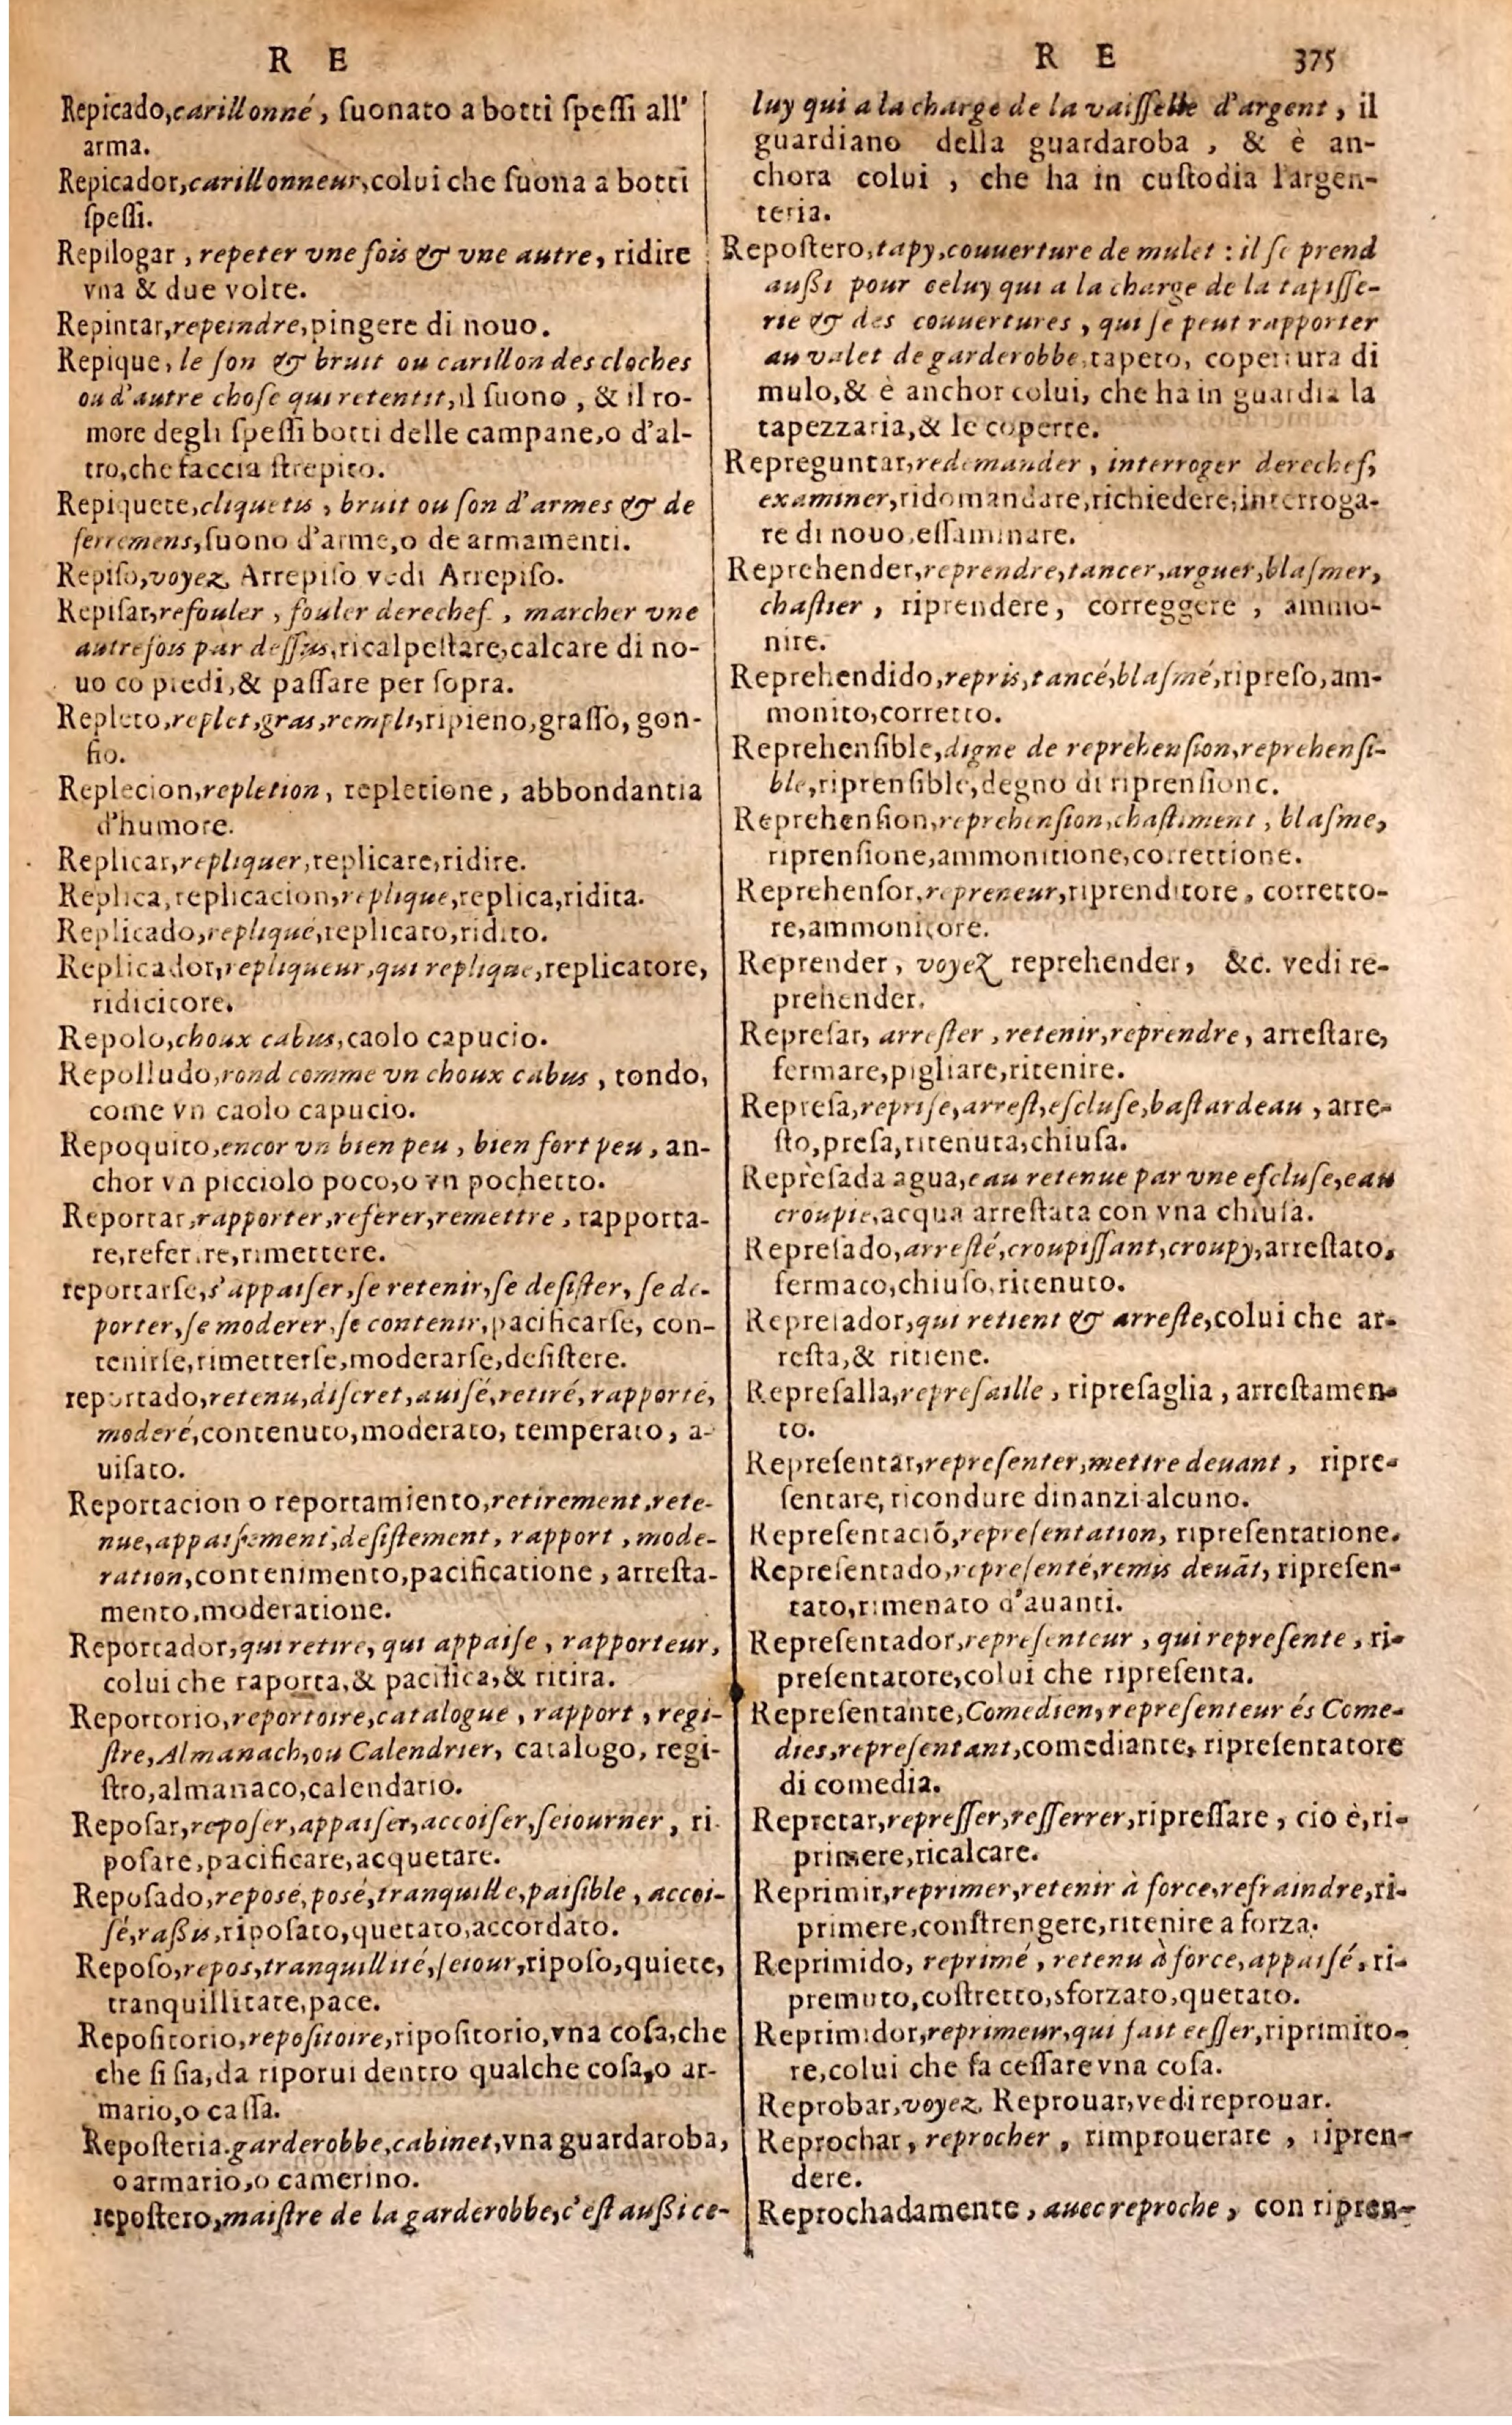 R E
Repicado, carillonné, ſuonato a botti ſpeſſi all'
arma.
Repicador, carillonneur, colui che ſuona a botti
ſpeſſi.
Repilogar, repeter vne fois & vne autre, ridire
vna & due volte.
Repintar, repeindre, pingere di nouo.
Repique, le ſon & bruit ou carillon des cloches
ou d'autre choſe qui retentit, il ſuono, & il ro-
more degli ſpeſſi botti delle campane, o d'al-
tro, che faccia ſtrepito.
Repiquete, cliquetis, bruit ou ſon d'armes & de
ferremens, ſuono d'arme, o de armamenti.
Repiſo, voyez Arrepiſo vedi Arrepiſo.
Repiſar, refouler, fouler derechef, marcher vne
autrefois par deſſus, ricalpeſtare, calcare di no-
uo co piedi, & paſſare per ſopra.
Repleto, replet, gras, rempli, ripieno, graſſo, gon-
fio.
Replecion, repletion, repletione, abbondantia
d'humore.
Replicar, repliquer, replicare, ridire.
Replica, replicacion, replique, replica, ridita.
Replicado, repliqué, replicato, ridito.
Replicador, repliqueur, qui replique, replicatore,
ridicitore.
Repolo, choux cabus, caolo capucio.
Repolludo, rond comme vn choux cabus, tondo,
come vn caolo capucio.
Repoquito, encor vn bien peu, bien fort peu, an-
chor vn picciolo poco, o vn pochetto.
Reportar, rapporter, referer, remettre, rapporta-
re, referire, rimettere.
reportarſe, s'appaiſer, ſe retenir, ſe deſiſter, ſe de-
porter, ſe moderer, ſe contenir, pacificarſe, con-
tenirſe, rimetterſe, moderarſe, deſiſtere.
reportado, retenu, diſcret, auiſé, retiré, rapporté,
moderé, contenuto, moderato, temperato, a-
uiſato.
Reportacion o reportamiento, retirement, rete-
nue, appaiſement, deſiſtement, rapport, mode-
ration, contenimento, pacificatione, arreſta-
mento, moderatione.
Reportador, qui retire, qui appaiſe, rapporteur,
colui che raporta, & pacifica, & ritira.
Reportorio, reportoire, catalogue, rapport, regi-
ſtre, Almanach, ou Calendrier, catalogo, regi-
ſtro, almanaco, calendario.
Repoſar, repoſer, appaiſer, accoiſer, ſeiourner, ri-
poſare, pacificare, acquetare.
Repoſado, repoſé, poſé, tranquille, paiſible, accoi-
ſé, raßis, ripoſato, quetato, accordato.
Repoſo, repos, tranquillité, ſeiour, ripoſo, quiete,
tranquillitate, pace.
Repoſitorio, repoſitoire, ripoſitorio, vna coſa, che
che ſi ſia, da riporui dentro qualche coſa, o ar-
mario, o caſſa.
Repoſteria. garderobbe, cabinet, vna guardaroba,
o armario, o camerino.
repoſtero, maiſtre de la garderobbe, c'eſt außi ce-
R E 375
luy qui a la charge de la vaiſſelle d'argent, il
guardiano della guardaroba, & è an-
chora colui, che ha in cuſtodia l'argen-
teria.
Repoſtero, tapy, couuerture de mulet : il ſe prend
außi pour celuy qui a la charge de la tapiſſe-
rie & des couuertures, qui ſe peut rapporter
au valet de garderobbe, tapeto, copertura di
mulo, & è anchor colui, che ha in guardia la
tapezzaria, & le coperte.
Repreguntar, redemander, interroger derechef,
examiner, ridomandare, richiedere, interroga-
re di nouo, eſſaminare.
Reprehender, reprendre, tancer, arguer, blaſmer,
chaſtier, riprendere, correggere, ammo-
nire.
Reprehendido, repris, tancé, blaſmé, ripreſo, am-
monito, corretto.
Reprehenſible, digne de reprehenſion, reprehenſi-
ble, riprenſible, degno di riprenſione.
Reprehenſion, reprehenſion, chaſtiment, blaſme,
riprenſione, ammonitione, correttione.
Reprehenſor, repreneur, riprenditore, corretto-
re, ammonitore.
Reprender, voyez reprehender, &c. vedi re-
prehender.
Repreſar, arreſter, retenir, reprendre, arreſtare,
fermare, pigliare, ritenire.
Repreſa, repriſe, arreſt, eſcluſe, baſtardeau, arre-
ſto, preſa, ritenuta, chiuſa.
Reprèſada agua, eau retenue par vne eſcluſe, eau
croupie, acqua arreſtata con vna chiuſa.
Repreſado, arreſté, croupiſſant, croupy, arreſtato,
fermato, chiuſo, ritenuto.
Repreſador, qui retient & arreſte, colui che ar-
reſta, & ritiene.
Repreſalla, repreſaille, ripreſaglia, arreſtamen-
to.
Repreſentar, repreſenter, mettre deuant, ripre-
ſentare, ricondure dinanzi alcuno.
Repreſentaciō, repreſentation, ripreſentatione.
Repreſentado, repreſenté, remis deuāt, ripreſen-
tato, rimenato d'auanti.
Repreſentador, repreſenteur, qui repreſente, ri-
preſentatore, colui che ripreſenta.
Repreſentante, Comedien, repreſenteur és Come-
dies, repreſentant, comediante, ripreſentatore
di comedia.
Repretar, repreſſer, reſſerrer, ripreſſare, cio è, ri-
primere, ricalcare.
Reprimir, reprimer, retenir à force, refraindre, ri-
primere, conſtrengere, ritenire a forza.
Reprimido, reprimé, retenu à force, appaiſé, ri-
premuto, coſtretto, sforzato, quetato.
Reprimidor, reprimeur, qui fait ceſſer, riprimito-
re, colui che fa ceſſare vna coſa.
Reprobar, voyez Reprouar, vedi reprouar.
Reprochar, reprocher, rimprouerare, ripren-
dere.
Reprochadamente, auec reproche, con ripren-